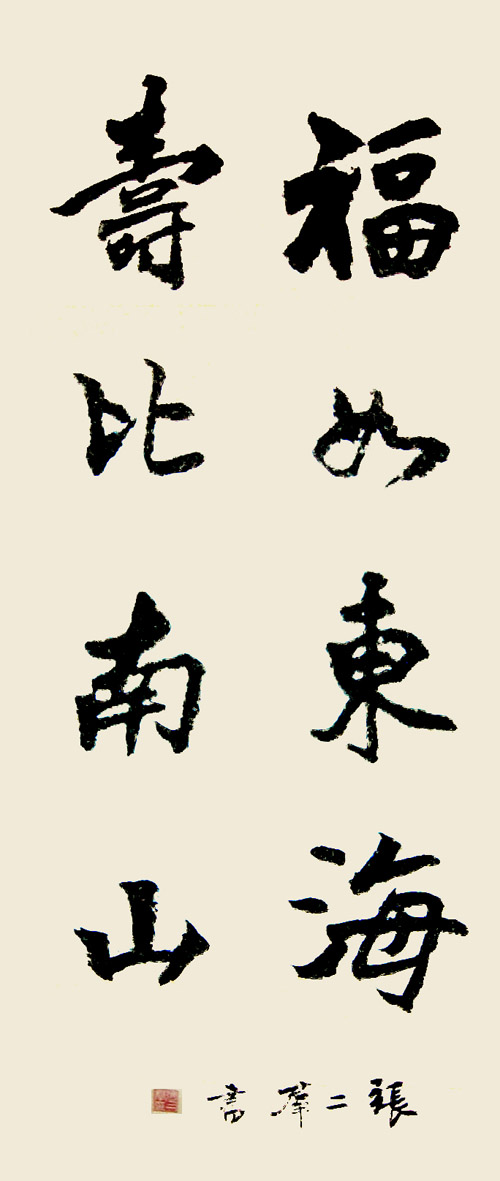 福如東海
壽比南山
張二羣書